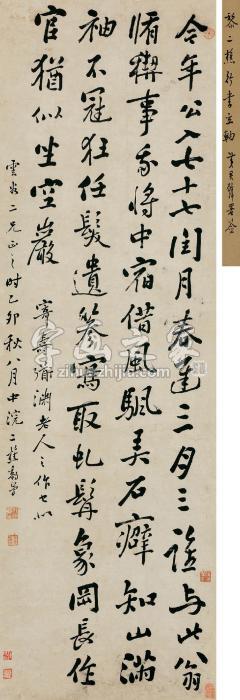 黎二樵行書立軸
今年公入七十七閏月春逢三月三誰与此翁
脩禊事我将中宿借風颿美石癖知山滿
袖不冠狂任髮遺簪寫取虬髯象岡長作
官猶似坐空巖
寄壽濟淵老人之作也似
二兄正之時乙卯秋八月中浣二樵黎簡